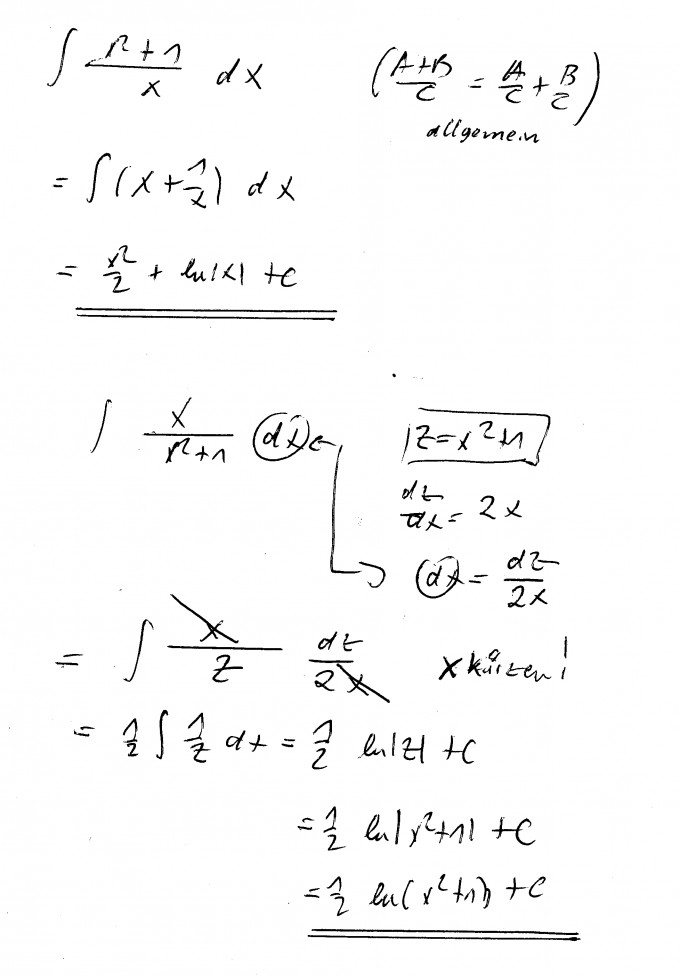 ∫ (x²+1)/x dx   ((A+B)/C = A/C + B/C)
allgemein
= ∫(x + 1/x) dx
= x²/2 + ln|x| + C
∫ x/(x²+1) dx   |z = x²+1
dz/dx = 2x
dx = dz/2x
= ∫ x/z dz/2x   x kürzen!
= 1/2 ∫ 1/z dz = 1/2 ln|z| + C
= 1/2 ln|x²+1| + C
= 1/2 ln(x²+1) + C